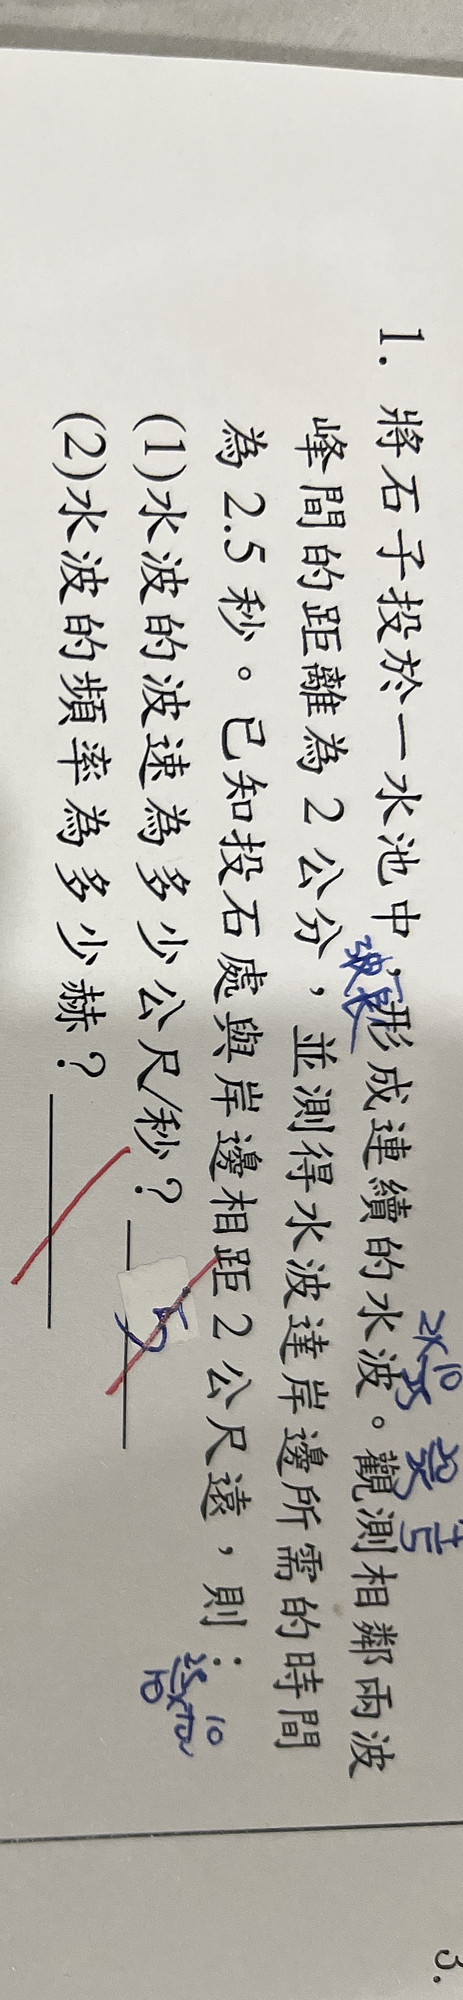 1. 將石子投於一水池中,形成連續的水波。觀測相鄰兩波
波長
峰間的距離為2公分,並測得水波達岸邊所需的時間
為2.5秒。已知投石處與岸邊相距2公尺遠,則:
(1)水波的波速為多少公尺/秒? 5
(2)水波的頻率為多少赫?
3.